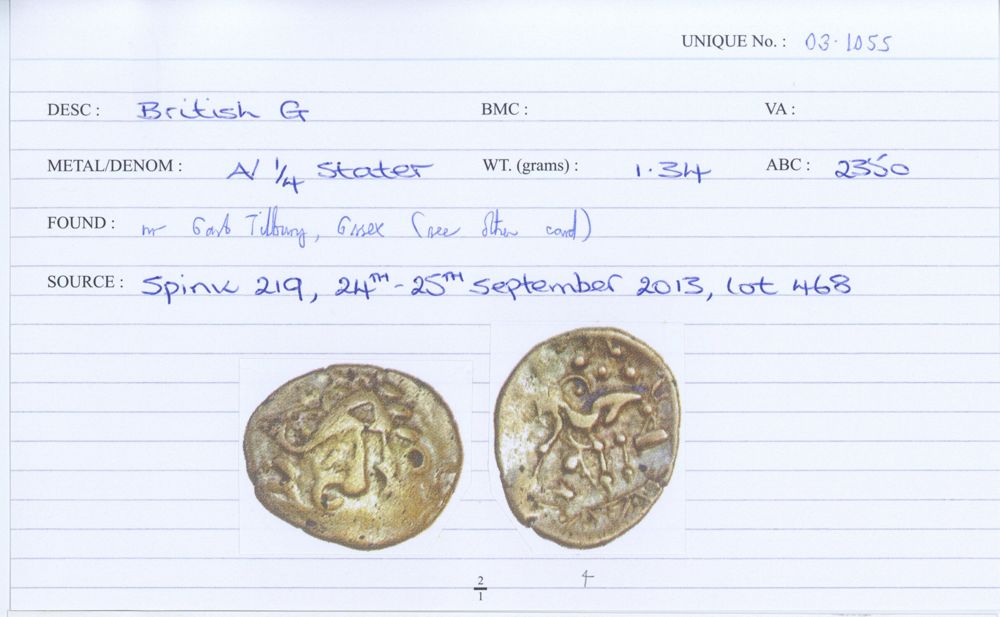 UNIQUE No. : 03.1055
DESC : British G BMC : VA :
METAL/DENOM : A/ 1/4 Stater WT. (grams) : 1.34 ABC : 2350
FOUND : nr East Tilbury, Essex (see other card)
SOURCE : Spink 219, 24TH-25TH September 2013, lot 468
2/1 4